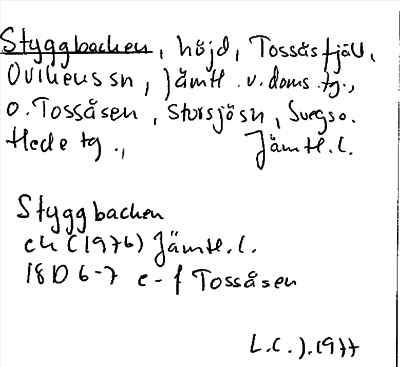 Styggbacken, höjd, Tossåsfjäll,
Ovikens sn, Jämtl. v. doms. tg.,
o. Tossåsen, Storsjö sn, Svegs o.
Hede tg., Jämtl. l.
Styggbacken
ek (1976) Jämtl. l.
18D 6-7 e-f Tossåsen
L.C.J. 1977